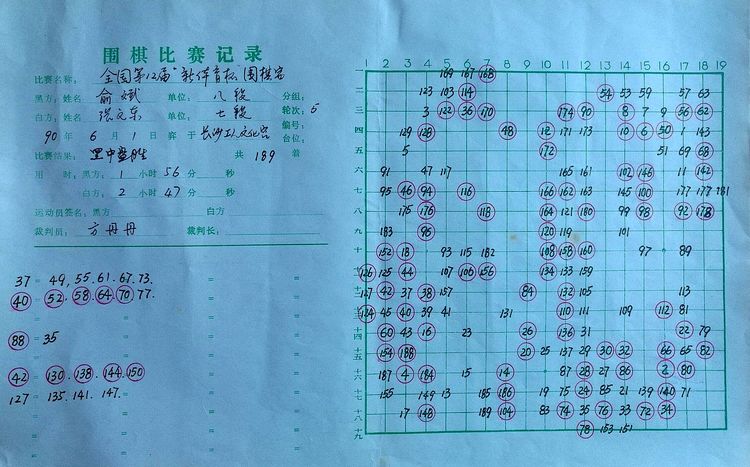 围棋比赛记录
比赛名称： 全国第12届"新体育杯"围棋赛
黑方：姓名 俞斌 单位： 八段 分组：
白方：姓名 单位： 七段 轮次：5
编号：
90年 6月 1日 弈于 长沙工人文化宫 台位：
比赛结果： 黑中盘胜 共 189 着
用 时：黑方：1 小时 56 分 秒
白方：2 小时 47 分 秒
运动员签名：黑方 白方
裁判员： 方丹丹 裁判长：
37 = 49, 55. 61. 67. 73.
40 = 52. 58. 64. 70 77.
88 = 35
42 = 130. 138. 144. 150
127 = 135. 141. 147.
1 2 3 4 5 6 7 8 9 10 11 12 13 14 15 16 17 18 19
一 169 167 168
二 123 103 114 54 53 59 57 63
三 3 122 36 170 174 90 8 7 9 56 62
四 129 128 48 12 171 173 10 6 50 1 143
5 172 51 69 68
六 91 47 117 102 146 11 142
七 95 46 94 116 166 162 163 145 100 177 181
八 175 176 118 164 121 180 99 98 92 178
183 96 120 119 101
十 152 18 93 115 182 108 158 160 97 89
126 125 44 107 106 156 134 133 159
127 42 37 38 157 84 132 105 113
124 45 40 39 41 131 110 111 109 112 81
60 43 16 23 26 136 31 22 79
154 188 20 25 137 29 30 32 66 65 82
187 4 184 15 14 87 28 27 86 2 80
155 149 13 185 186 19 75 24 85 21 139 140 71
17 148 189 104 83 74 35 76 33 72 34
十九 78 153 151